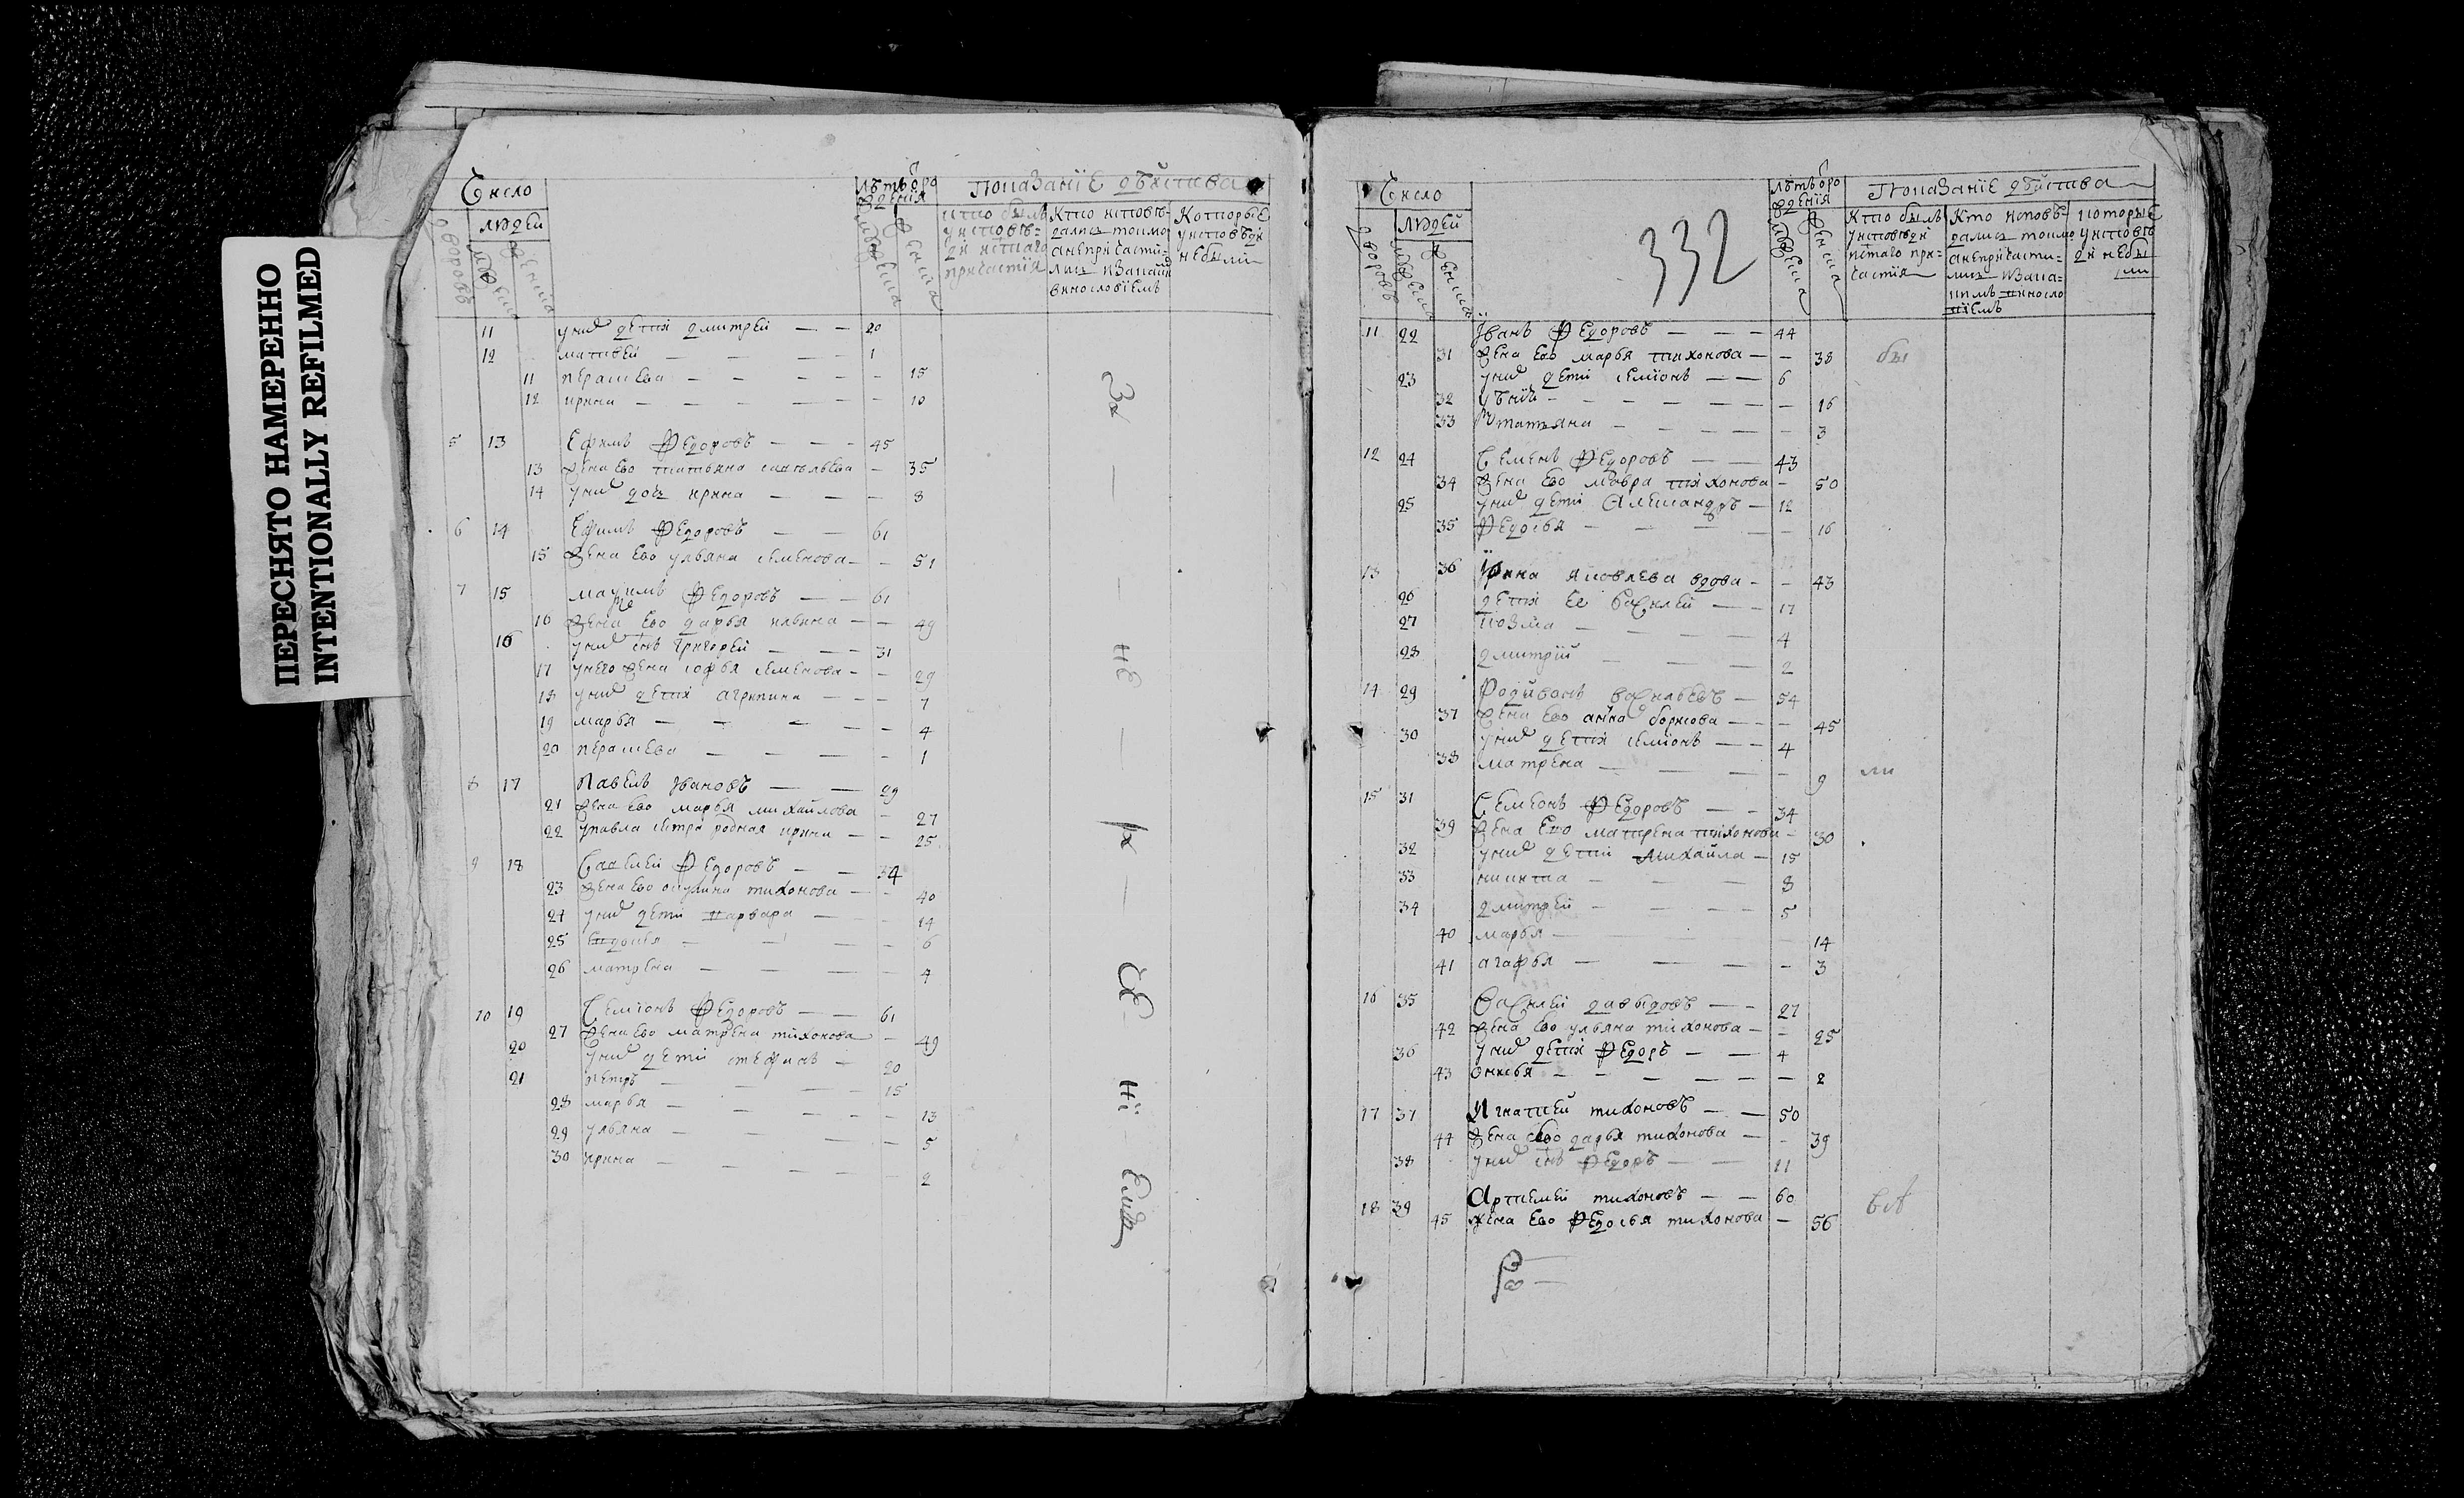 ПЕРЕСНЯТО НАМЕРЕННО
INTENTIONALLY REFILMED
Число
людей
дворовъ
мужеска
женска
лѣтъ ѿ ро
жденїя
мужеска
женска
показанїе дѣйства
кто былъ
у исповѣ-
ди и с͠таго
причастїя
Кто исповѣ-
дались токмо
а не причасти-
лись и за каки
винословїемъ
Которые
у исповѣди
не были
11 у них дети дмитрей — — 20
12 матвей — — — — 1
11 парасkева — — — — — 15
12 ирина — — — — — 10
5 13 Ефимъ Федоровъ — — — 45
13 жена ево татьяна савельева — 35
14 у них дочь ирина — — — 8
6 14 Ефимъ Федоровъ — — 61
15 жена ево ульяна семенова — — 51
7 15 маѯимъ Федоровъ — — 61
16 жена ево дарья ильина — — 49
16 у них сн͠ъ григорей — — — 31
17 у него жена софья семенова — — 29
18 у них дети агрипина — — — 7
19 марья — — — — 4
20 параскева — — — — 1
8 17 Павелъ Ивановъ — — 29
21 жена ево марья михайлова — 27
22 у павла сестра родная ирина — — 25
9 18 Савелей Федоровъ — — 34
23 жена ево акулина тихонова — — 40
24 у них дети варвара — — 14
25 евдокия — — — — 6
26 матрена — — — — 4
10 19 Семїонъ Федоровъ — — 61
27 жена ево матрена тихонова — 49
20 у них дети стефанъ — 20
21 петръ — — — 15
28 марья — — — — 13
29 ульяна — — — — 5
30 ирина — — — — 2
За — — не — — Се нї Емъ
332
Число
людей
дворовъ
мужеска
женска
лѣтъ ѿ ро
жденїя
мужеска
женска
Показанїе дѣйства
Кто былъ
у исповѣди
и с͠таго при-
частїя
Кто исповѣ-
дались токмо
а не причасти-
лись и за ка-
кимъ виносло
вїемъ
которые
у исповѣ
ди не бы
ли
11 22 Иванъ Федоровъ — — — 44
31 жена ево марья тихонова — — 38 бы
23 у них дети семїонъ — — 6
32 — — — — 16
33 татьяна — — — — 3
12 24 Семенъ Федоровъ — — 43
34 жена ево мавра тихонова — 50
25 у них дети Александръ — 12
35 Федосья — — — — 16
13 36 Ирина яковлева вдова — — 43
26 дети ее василей — — 17
27 козма — — — 4
28 дмитрїй — — — 2
14 29 Родивонъ васильевъ — 54
37 жена ево анна борисова — — — 45
30 у них дети семїонъ — — 4
38 матрена — — — — 9 ли
15 31 Семионъ Федоровъ — — 34
39 жена ево матрена тихонова — 30
32 у них дети Михайла — 15
33 никита — — — 8
34 дмитрей — — — 5
40 марья — 14
41 агафья — — — — 3
16 35 Василей давыдовъ — — 27
42 жена ево ульяна тихонова — — 25
36 у них дети Федоръ — — 4
43 — — — — — 2
17 37 Игнатей тихоновъ — — 50
44 жена ево дарья тихонова — — 39
38 у них сн͠ъ Федоръ — — 11
18 39 Артемей тихоновъ — — 60
45 жена ево Федосья тихонова — 56